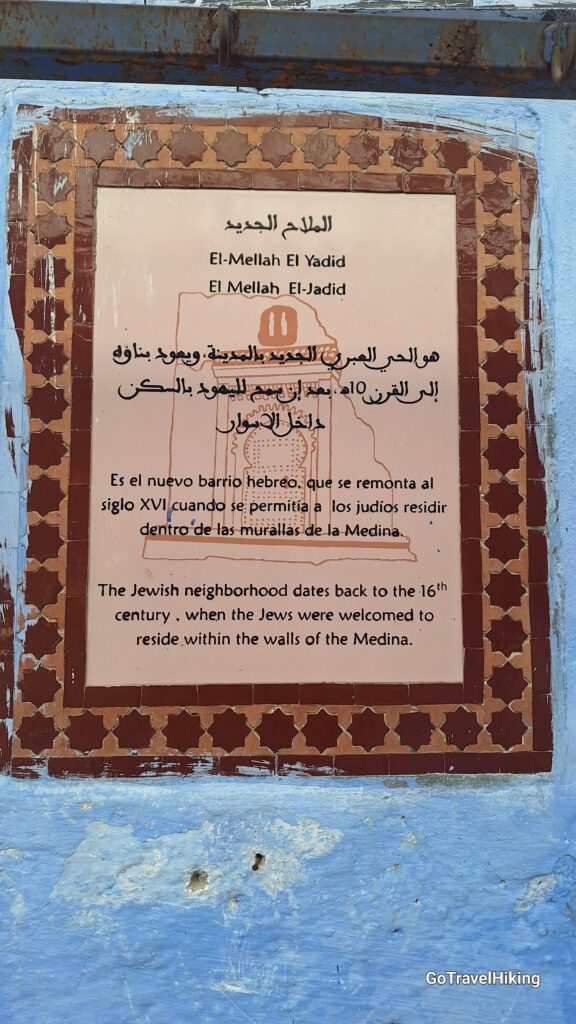 الملاح الجديد
El-Mellah El Yadid
El Mellah El-Jadid
هو الحي العبري الجديد بالمدينة، ويعود بناؤه
إلى القرن 10هـ، بعد إن سمح لليهود بالسكن
داخل الاسوار
Es el nuevo barrio hebreo, que se remonta al
siglo XVI cuando se permitía a los judíos residir
dentro de las murallas de la Medina.
The Jewish neighborhood dates back to the 16th
century , when the Jews were welcomed to
reside within the walls of the Medina.
GoTravelHiking